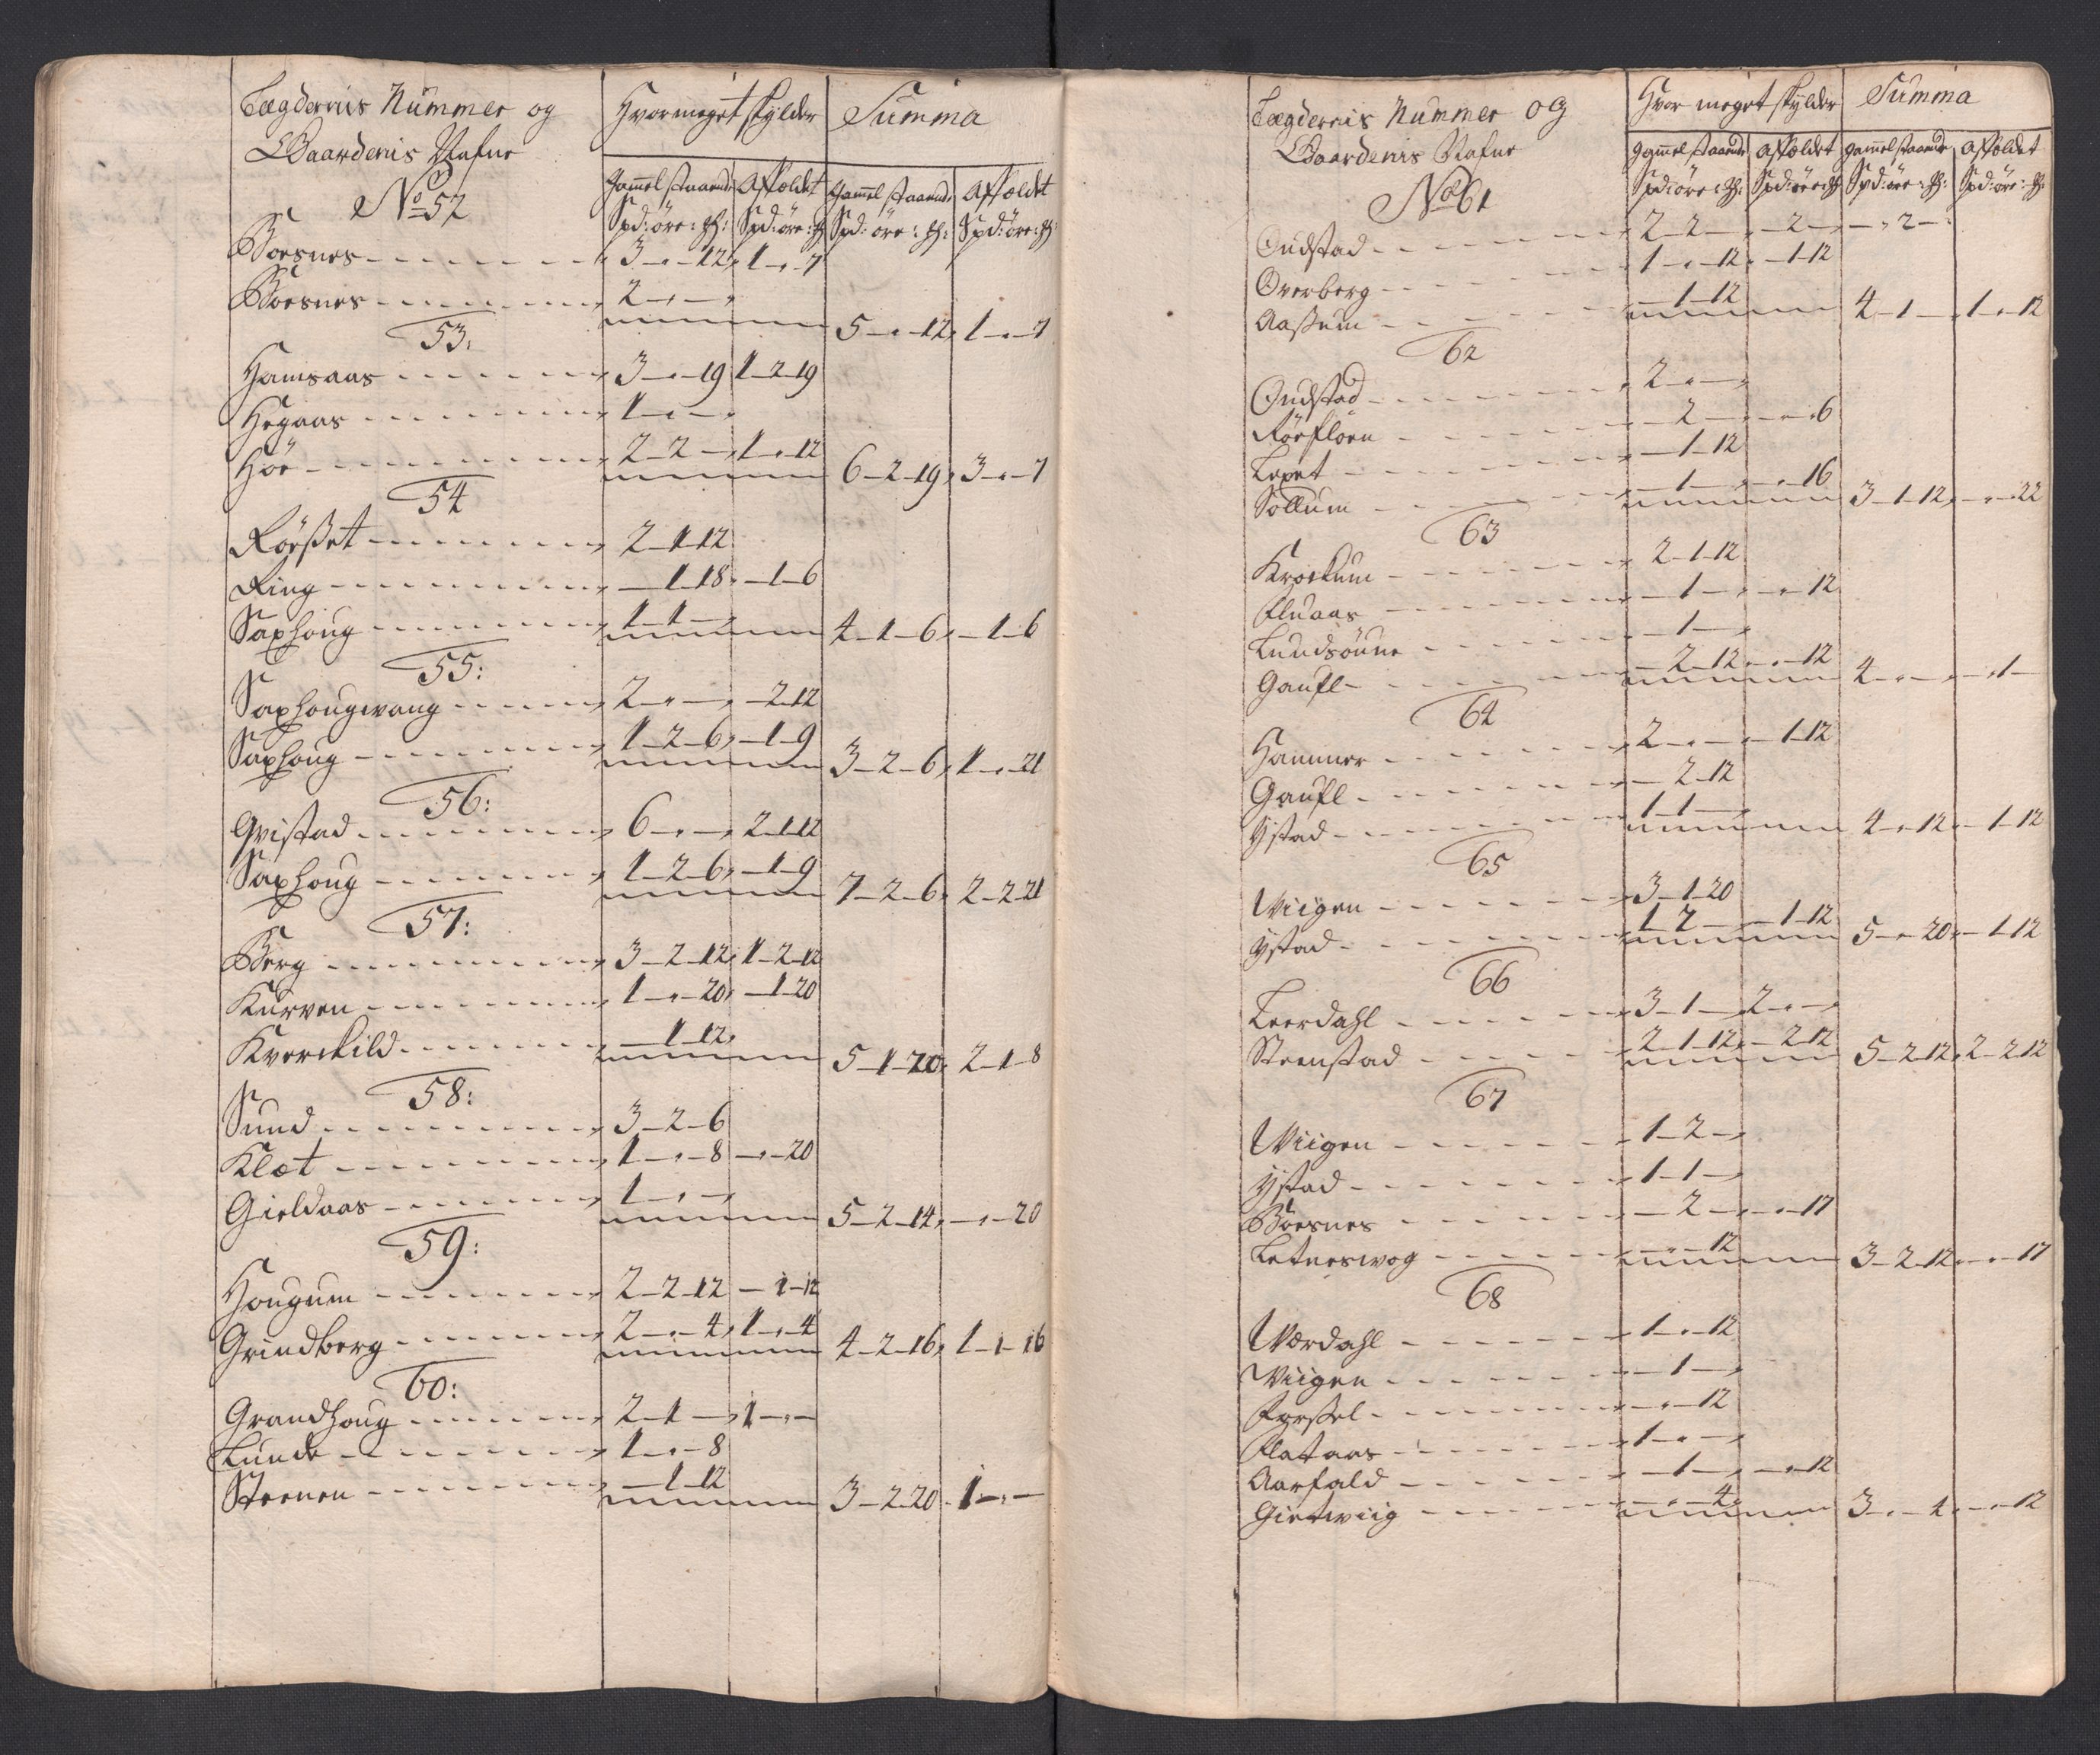 Lægdernis Nummer og Hvormeget skylder Summa
Gaardenis Nafne
Gammel staaende Affældet Gammel staaende Affældet
No 52 Spd: öre: Spd: öre: Spd: öre: Spd: öre:
Boesnes 3 - " - 12 1 - " - 7
Boesnes 2 - " -
5 - " - 12 1 - " - 7
53.
Hamsaas 3 - " - 19 1 - 2 - 19
Hegaas 1 - " -
Höe 2 - 2 - 1 - " - 12 6 - 2 - 19 3 - " - 7
54
Röeßet 2 - 1 - 12
Ring - 1 - 18 - 1 - 6
Saxhoug 1 - 1 - 4 - 1 - 6 - 1 - 6
55:
Saxhougwang 2 - " - - 2 - 12
Saxhoug 1 - 2 - 6 - 1 - 9 3 - 2 - 6 1 - " - 21
56:
Qvistad 6 - " - 2 - 1 - 12
Saxhoug 1 - 2 - 6 - 1 - 9 7 - 2 - 6 2 - 2 - 21
57:
Berg 3 - 2 - 12 1 - 2 - 12
Kurven 1 - " - 20 - 1 - 20
Kverckild - 1 - 12 5 - 1 - 20 2 - 1 - 8
58:
Sund 3 - 2 - 6
Klæt 1 - " - 8 - " - 20
Gieldaas 1 - " - 5 - 2 - 14 - " - 20
59:
Hougum 2 - 2 - 12 - 1 - 12
Grindberg 2 - " - 4 1 - " - 4 4 - 2 - 16 1 - 1 - 16
60:
Grandhoug 2 - 1 - 1 - " -
Lunde 1 - " - 8
Steenen - 1 - 12 3 - 2 - 20 1 - " -
Lægdernis Nummer og Hvor meget skylder Summa
Gaardenis Nafne
Gammel staaende Affældet Gammel staaende Affældet
No 61 Spd: öre: Spd: öre: Spd: öre: Spd: öre:
Oudstad 2 - 2 - - 2 - - " 2 -
Overberg 1 - " - 12 - 1 - 12
Aaßum - 1 - 12 4 - 1 - 1 - " - 12
62
Oudstad 2 - " -
Röeflöen - 2 - - " 6
Lexet - 1 - 12
Sollum - 1 - - " - 16 3 - 1 - 12 - " - 22
63
Krockum 2 - 1 - 12
Eluaas - 1 - - " - 12
Lundsöune - 1 -
Gaufl - 2 - 12 - " - 12 4 - " - - 1 -
64
Hammer 2 - " - - 1 - 12
Gaufl - 2 - 12
Ystad 1 - 1 - 4 - " - 12 - 1 - 12
65
Wiigen 3 - 1 - 20
Ystad 1 - 2 - - 1 - 12 5 - " - 20 - 1 - 12
66
Leerdahl 3 - 1 - 2 - " -
Steenstad 2 - 1 - 12 - 2 - 12 5 - 2 - 12 2 - 2 - 12
67
Wiigen 1 - 2 -
Ystad 1 - 1 -
Böesnes - 2 - - " - 17
Letneswog - " - 12 3 - 2 - 12 - " - 17
68
Værdahl 1 - " - 12
Wiigen - 1 -
Forßel - " - 12
Flataas 1 - " -
Aarfald - 1 - - " - 12
Gietwiig - " - 4 3 - " - 4 - " - 12